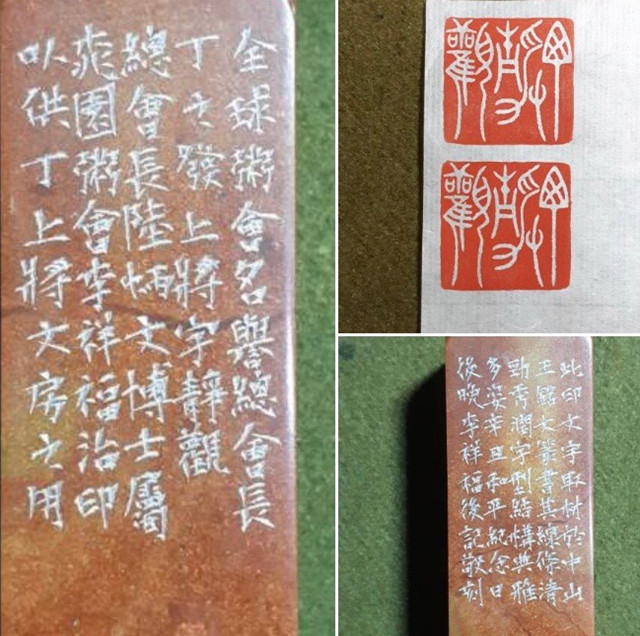 全球粥會名譽總會長
丁之發上將字靜觀
總會長陸炳文博士屬
桃園粥會李祥福治印
以供丁上將文房之用
此印文字取材於中山
王器文篆書其線條清
勁秀潤字型結構典雅
多姿辛丑和平紀念日
後晚李祥福後記敬刻